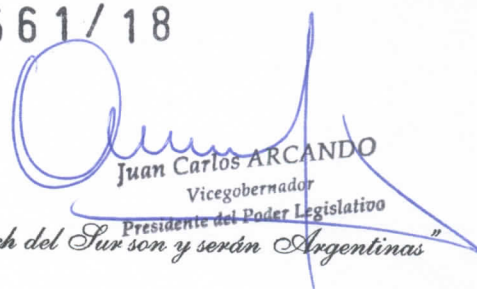 561/18
Juan Carlos ARCANDO
Vicegobernador
Presidente del Poder Legislativo
del Sur son y serán Argentinas"